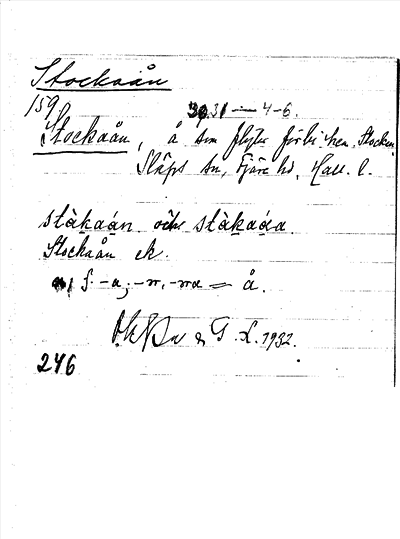 Stockaån
159
3031 — 4-6.
Stockaån, å som flyter förbi hem. Stocken,
Släps sn, Fjäre hd, Hall. l.
stàkaán och stàkaáa
Stockaån ek.
f. -a; -n, -na = å.
& G. L. 1932.
246